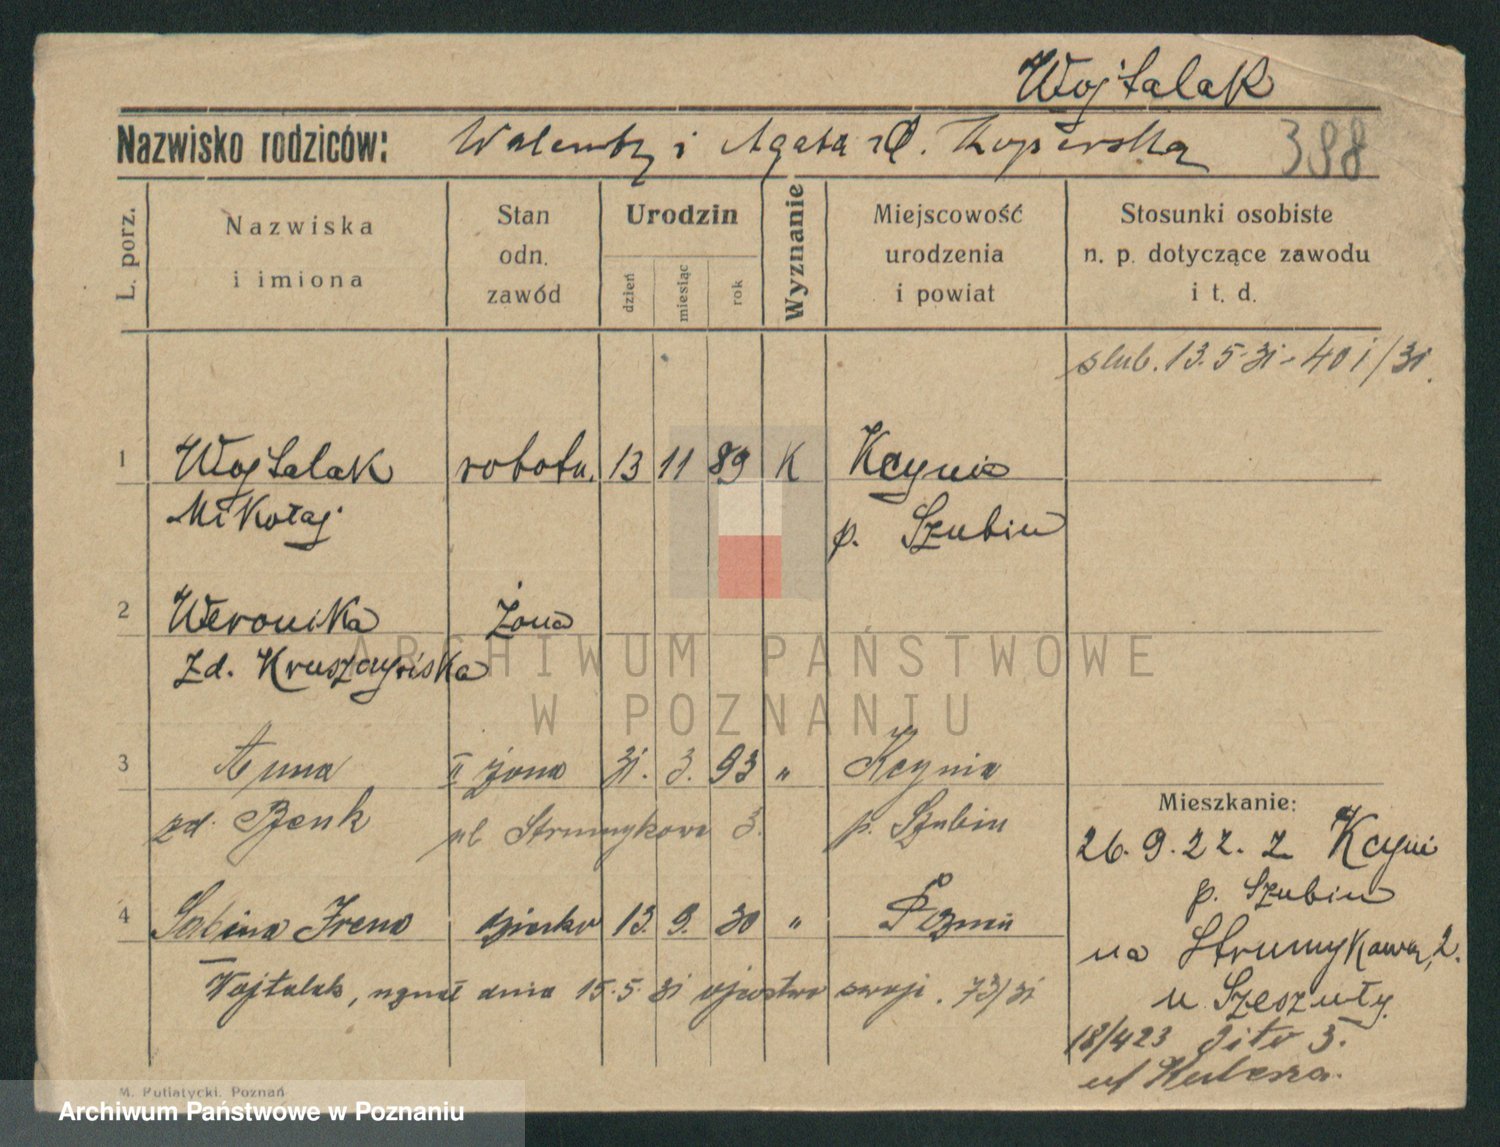 Wojtalak
Nazwisko rodziców: Walenty i Agata zd. Koperska
398
L. porz.
Nazwiska i imiona
Stan odn. zawód
Urodzin
dzień miesiąc rok
Wyznanie
Miejscowość urodzenia i powiat
Stosunki osobiste n. p. dotyczące zawodu i t. d.
slub. 13.5.31 - 401/31.
1 Wojtalak robotn. 13 11 89 K Kcynia
Mikołaj p. Szubin
2 Weronika żona
zd. Kruszczyńska
3 Anna II żona 31. 3. 93 " Kcynia
zd. Benk ul Strumykowa 3. p. Szubin
Mieszkanie:
26.9.22. z Kcyni
p. Szubin
4 Sabina Irena dziecko 13. 9. 30 " Poznań
na Strumykowa, 2.
Wojtalak, uznał dnia 15.5.31 ojcostwo swoje. 73/31
u Szeszuły
18/423 dito 3.
u/ Kubesza.
ARCHIWUM PAŃSTWOWE
W POZNANIU
M. Putiatycki, Poznań
Archiwum Państwowe w Poznaniu